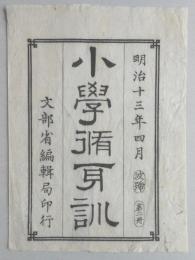 明治十三年四月
小學脩身訓
文部省編輯局印行